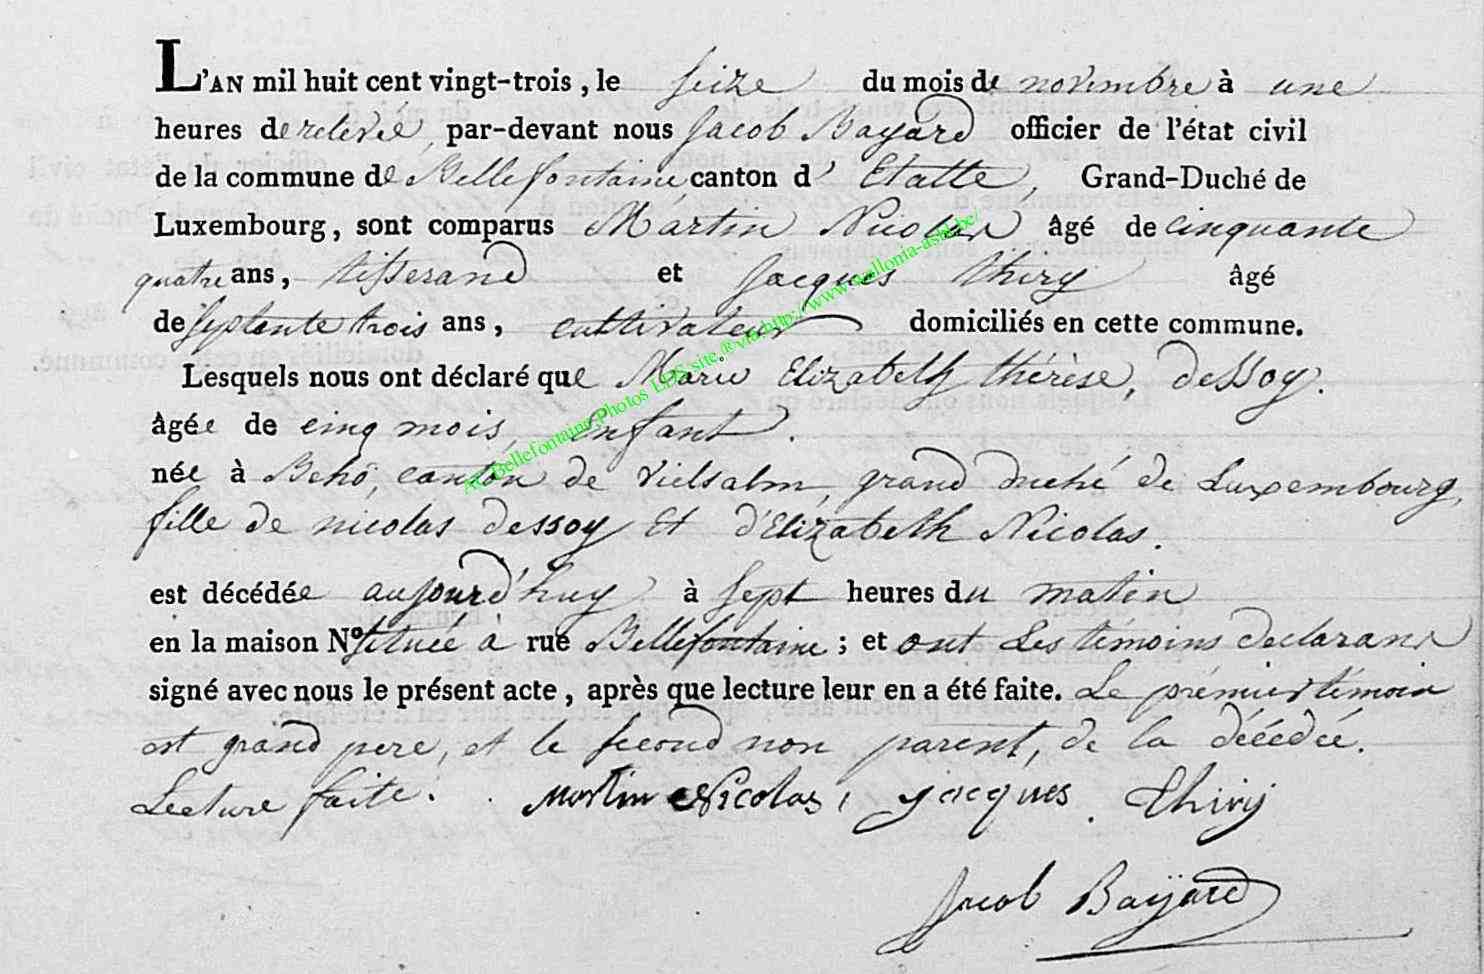 L'AN mil huit cent vingt-trois, le seize du mois de novembre à une
heures de relevée, par-devant nous Jacob Bayard officier de l'état civil
de la commune de Bellefontaine, canton d' Etalle, Grand-Duché de
Luxembourg, sont comparus Martin Nicolas âgé de cinquante
quatre ans, tisserand et Jacques thiry âgé
de septente trois ans, cultivateur domiciliés en cette commune.
Lesquels nous ont déclaré que Marie Elizabeth thérèse, dessoy.
âgée de cinq mois, Enfant.
née à Beho, canton de vielsalm, grand duché de Luxembourg,
fille de nicolas dessoy et d'Elizabeth Nicolas.
est décédée aujourd'huy à sept heures du matin
en la maison N° située à rue Bellefontaine ; et ont Les témoins declarans
signé avec nous le présent acte, après que lecture leur en a été faite. Le prémier témoin
est grand pere, et le second non parent, de la décédée.
Lecture faite. Martin Nicolas, jacques Thiry
Jacob Bayard
AE Bellefontaine Photos LDS site ® via http://www.wallonia-asbl.be/